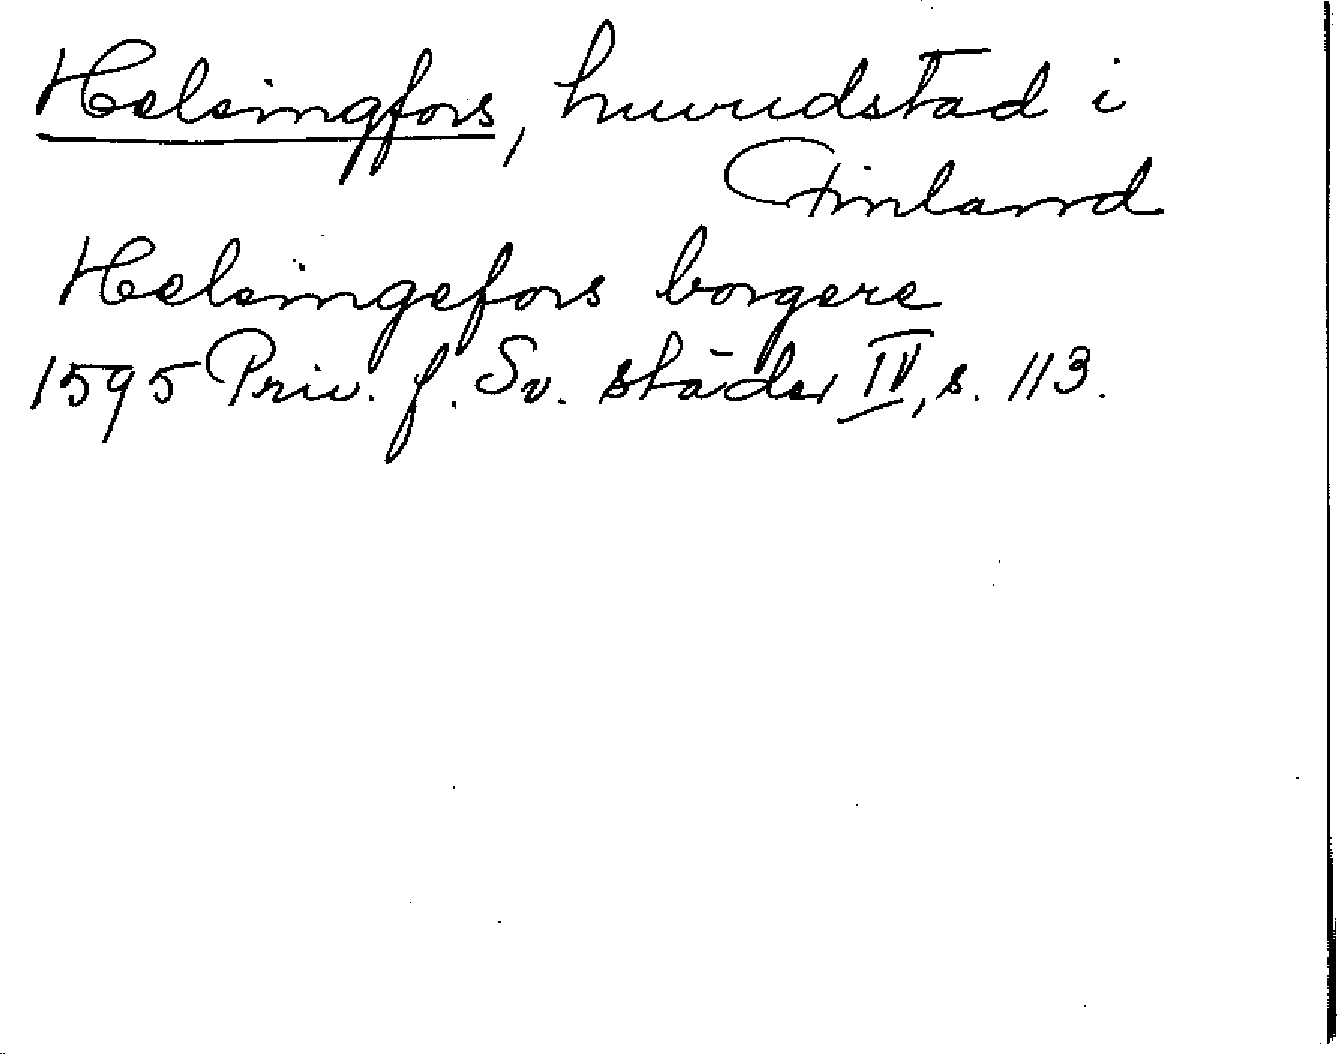 Helsingfors, huvudstad i
Finland
Helsingefors borgere
1595 Priv. f. Sv. städer IV, s. 113.